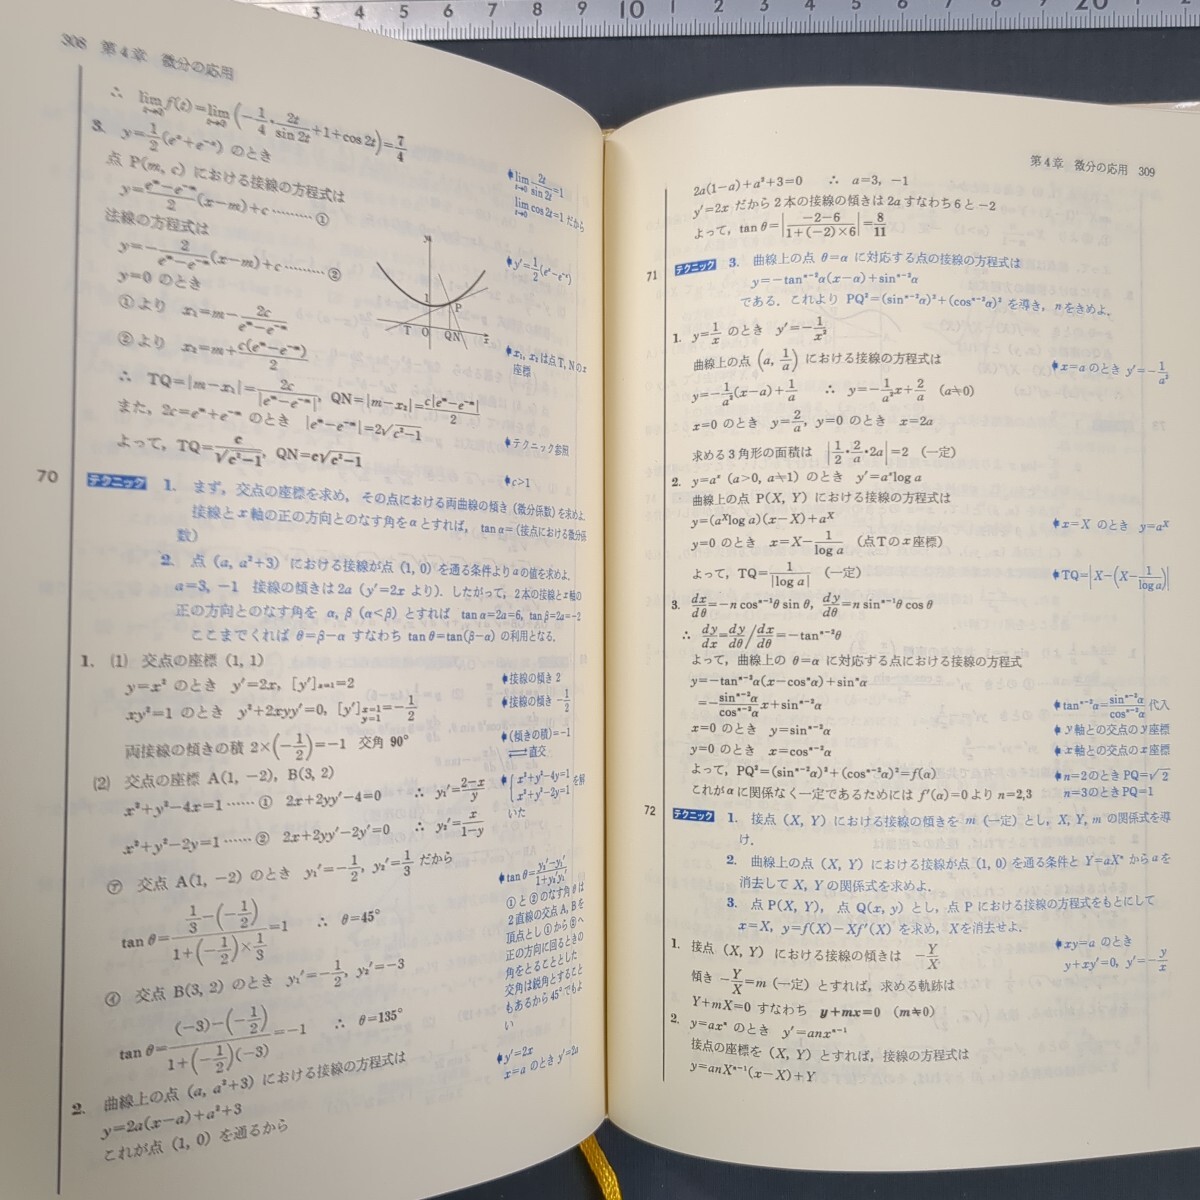 3 4 5 6 7 8 9 10 1 2 3 4 5 6 7 8 9 20 1 2
308 第4章 微分の応用
∴ lim f(t)=lim(-1/4・2t/sin2t+1+cos2t)=7/4
3. y=1/2(eˣ+e⁻ˣ) のとき
点 P(m, c) における接線の方程式は
y=(eᵐ-e⁻ᵐ)/2(x-m)+c ……… ①
法線の方程式は
y=-2/(eᵐ-e⁻ᵐ)(x-m)+c ……… ②
y=0 のとき
①より x₁=m-2c/(eᵐ-e⁻ᵐ)
②より x₂=m+c(eᵐ-e⁻ᵐ)/2
∴ TQ=|m-x₁|=2c/|eᵐ-e⁻ᵐ|, QN=|m-x₂|=c|eᵐ-e⁻ᵐ|/2
また, 2c=eᵐ+e⁻ᵐ のとき |eᵐ-e⁻ᵐ|=2√(c²-1)
よって, TQ=c/√(c²-1), QN=c√(c²-1)
lim 2t/sin2t=1
t→0
lim cos2t=1 だから
t→0
y'=1/2(eˣ-e⁻ˣ)
x₁, x₂は点T, Nのx
座標
テクニック参照
c>1
y
1
P
T O QN x
70 テクニック 1. まず, 交点の座標を求め, その点における両曲線の傾き (微分係数) を求めよ.
接線とx軸の正の方向とのなす角をαとすれば, tanα=(接点における微分係
数)
2. 点 (a, a²+3) における接線が点 (1, 0) を通る条件よりaの値を求めよ.
a=3, -1 接線の傾きは2a (y'=2x より). したがって, 2本の接線とx軸の
正の方向とのなす角を α, β (α<β) とすれば tanα=2a=6, tanβ=2a=-2
ここまでくれば θ=β-α すなわち tanθ=tan(β-α) の利用となる.
1. (1) 交点の座標 (1, 1)
y=x² のとき y'=2x, [y']x=1=2
xy²=1 のとき y²+2xyy'=0, [y']x=1 y=1=-1/2
両接線の傾きの積 2×(-1/2)=-1 交角 90°
接線の傾き 2
接線の傾き -1/2
(傾きの積)=-1
⇄直交
(2) 交点の座標 A(1, -2), B(3, 2)
x²+y²-4x=1 …… ① 2x+2yy'-4=0 ∴ y₁'=(2-x)/y
x²+y²-2y=1 …… ② 2x+2yy'-2y'=0 ∴ y₂'=x/(1-y)
㋐ 交点 A(1, -2) のとき y₁'=-1/2, y₂'=1/3 だから
tanθ=(1/3-(-1/2))/(1+(-1/2)×1/3)=1 ∴ θ=45°
㋑ 交点 B(3, 2) のとき y₁'=-1/2, y₂'=-3
tanθ=((-3)-(-1/2))/(1+(-1/2)(-3))=-1 ∴ θ=135°
2. 曲線上の点 (a, a²+3) における接線の方程式は
y=2a(x-a)+a²+3
これが点 (1, 0) を通るから
x²+y²-4y=1
x²+y²-2y=1 を解
いた
tanθ=(y₂'-y₁')/(1+y₂'y₁')
①と②のなす角θは
2直線の交点A, Bを
頂点とし①から②へ
正の方向に回るときの
角をとることとした
交角は鋭角とすること
もあるから45°でもよ
い
y'=2x
x=a のとき y'=2a
第4章 微分の応用 309
2a(1-a)+a²+3=0 ∴ a=3, -1
y'=2x だから2本の接線の傾きは 2a すなわち6と-2
よって, tanθ=|(-2-6)/(1+(-2)×6)|=8/11
71 テクニック 3. 曲線上の点 θ=α に対応する点の接線の方程式は
y=-tanⁿ⁻²α(x-α)+sinⁿ⁻²α
である. これより PQ²=(sinⁿ⁻²α)²+(cosⁿ⁻²α)² を導き, nをきめよ.
1. y=1/x のとき y'=-1/x²
曲線上の点 (a, 1/a) における接線の方程式は
y=-1/a²(x-a)+1/a ∴ y=-1/a²x+2/a (a≠0)
x=0 のとき y=2/a, y=0 のとき x=2a
求める3角形の面積は |1/2・2/a・2a|=2 (一定)
x=a のとき y'=-1/a²
2. y=aˣ (a>0, a≠1) のとき y'=aˣlog a
曲線上の点 P(X, Y) における接線の方程式は
y=(aˣlog a)(x-X)+aˣ
y=0 のとき x=X-1/log a (点Tのx座標)
よって, TQ=1/|log a| (一定)
x=X のとき y=aˣ
TQ=|X-(X-1/log a)|
3. dx/dθ=-n cosⁿ⁻¹θ sinθ, dy/dθ=n sinⁿ⁻¹θ cosθ
∴ dy/dx=dy/dθ/dx/dθ=-tanⁿ⁻²θ
よって, 曲線上の θ=α に対応する点における接線の方程式
y=-tanⁿ⁻²α(x-cosⁿα)+sinⁿα
=-sinⁿ⁻²α/cosⁿ⁻²α x+sinⁿ⁻²α
x=0 のとき y=sinⁿ⁻²α
y=0 のとき x=cosⁿ⁻²α
よって, PQ²=(sinⁿ⁻²α)²+(cosⁿ⁻²α)²=f(α)
これがαに関係なく一定であるためには f'(α)=0 より n=2,3
tanⁿ⁻²α=sinⁿ⁻²α/cosⁿ⁻²α 代入
y軸との交点のy座標
x軸との交点のx座標
n=2のとき PQ=√2
n=3のとき PQ=1
72 テクニック 1. 接点 (X, Y) における接線の傾きを m (一定) とし, X, Y, m の関係式を導
け.
2. 曲線上の点 (X, Y) における接線が点 (1, 0) を通る条件と Y=aXⁿ からaを
消去して X, Y の関係式を求めよ.
3. 点 P(X, Y), 点 Q(x, y) とし, 点 P における接線の方程式をもとにして
x=X, y=f(X)-Xf'(X) を求め, Xを消去せよ.
1. 接点 (X, Y) における接線の傾きは -Y/X
傾き -Y/X=m (一定) とすれば, 求める軌跡は
Y+mX=0 すなわち y+mx=0 (m≠0)
xy=a のとき
y+xy'=0, y'=-y/x
2. y=axⁿ のとき y'=anxⁿ⁻¹
接点の座標を (X, Y) とすれば, 接線の方程式は
y=anXⁿ⁻¹(x-X)+Y